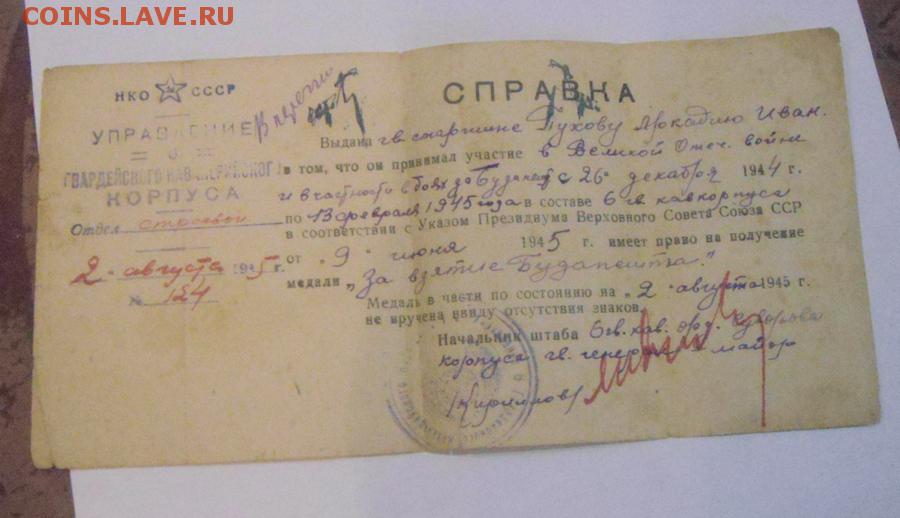 COINS.LAVE.RU
НКО СССР
УПРАВЛЕНИЕ
6
ГВАРДЕЙСКОГО КАВАЛЕРИЙСКОГО
КОРПУСА
Отдел строевой
2 " августа 1945 г.
№ 124
СПРАВКА
Выдана гв. старшине Пухову Аркадию Иван.
в том, что он принимал участие в Великой Отеч. войне
и в частность в боях за Будапешт с 26 " декабря 1944 г.
по 13 февраля 1945 года в составе 6 гв кавкорпуса
в соответствии с Указом Президиума Верховного Совета Союза ССР
от " 9 " июня 1945 г. имеет право на получение
медали „За взятие Будапешта."
Медаль в части по состоянию на " 2 " августа 1945 г.
не вручена ввиду отсутствия знаков.
Начальник штаба 6 гв. кав. орд. Суворова
корпуса гв. генерал-майор
/Кириллов/